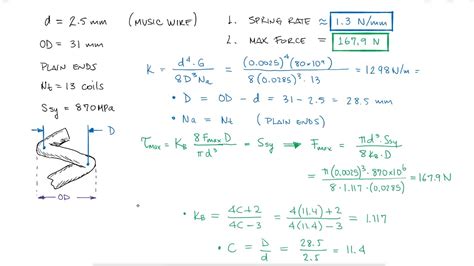 d = 2.5 mm (MUSIC WIRE)
OD = 31 mm
PLAIN ENDS
Nt = 13 coils
Ssy = 870 MPa
D
OD
1. SPRING RATE ≈ 1.3 N/mm
2. MAX FORCE = 167.9 N
K = d⁴·G / 8D³Na = (0.0025)⁴(80×10⁹) / 8(0.0285)³·13 = 1298 N/m =
• D = OD - d = 31 - 2.5 = 28.5 mm
• Na = Nt (PLAIN ENDS)
τmax = KB 8FmaxD / πd³ = Ssy ⇒ Fmax = πd³·Ssy / 8KB·D
= π(0.0025)³·870×10⁶ / 8·1.117·(0.0285) = 167.9 N
• KB = 4C+2 / 4C-3 = 4(11.4)+2 / 4(11.4)-3 = 1.117
• C = D/d = 28.5/2.5 = 11.4